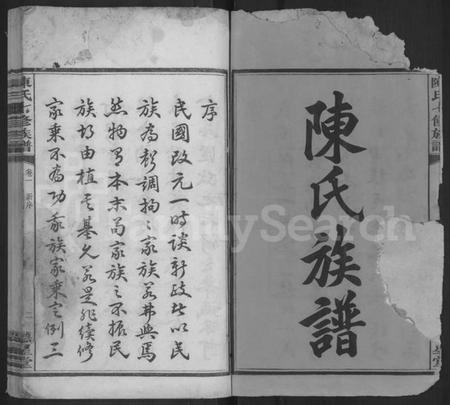 陳氏族譜
陳氏七修族譜
序
民國改元一時談新政者以民
族為新調拘之家族若弗與焉
然物有本末苟家族之不振民
族何由植其基乆若是非續修
家乘不為功我族家乘之例三
陳氏七修族譜
卷一 新序
二
FamilySearch